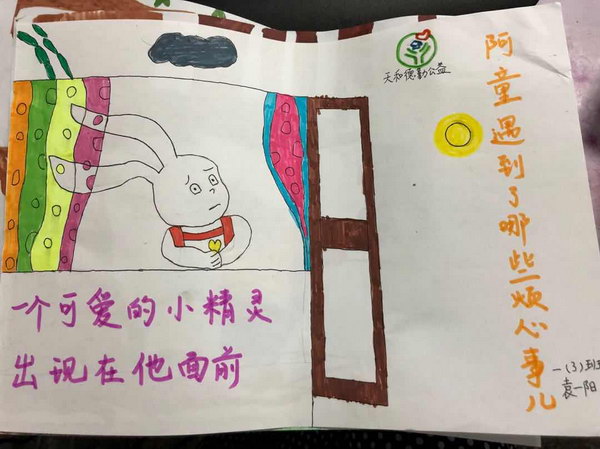 天和德勤公益
阿童遇到了哪些烦心事儿
一(3)班
袁一阳
一个可爱的小精灵
出现在他面前